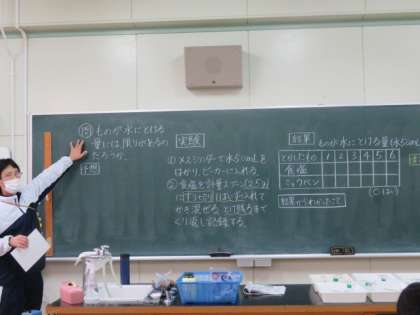 問 ものが水にとける
量には限りがあるの
だろうか。
予想
実験
① メスシリンダーで水50mLを
はかり、ビーカーに入れる。
② 食塩を計量スプーン(2.5g)
にすり切り1ぱいずつ入れて
かき混ぜる。とけ残るまで
くり返し記録する。
結果 ものが水にとける量(水50mL
とかしたもの 1 2 3 4 5 6
食塩
ミョウバン
(℃)
結果からわかったこと